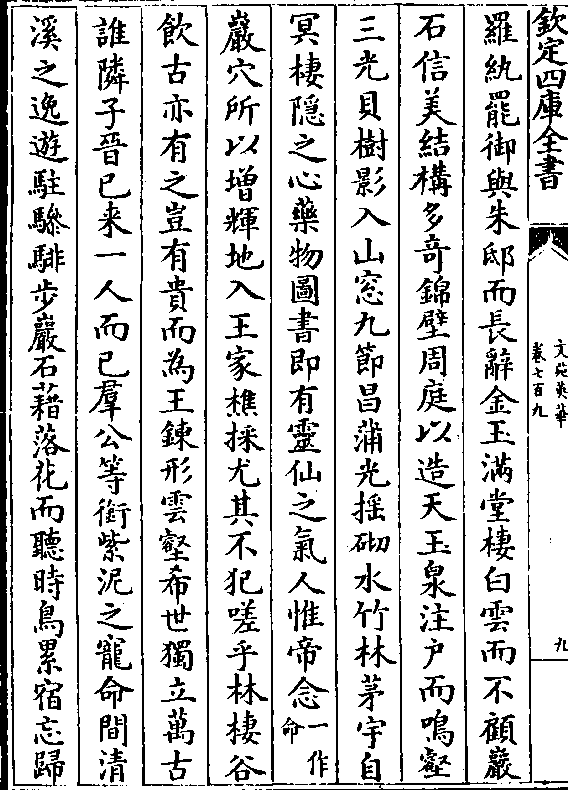 欽定四庫全書
文苑英華
卷七百九
九
羅紈罷御與朱邸而長辭金玉滿堂棲白雲而不顧巖
石信美結構多奇錦壁周庭以造天玉泉注户而鳴壑
三光貝樹影入山窓九節昌蒲光摇砌水竹林茅宇自
冥棲隠之心藥物圖書即有靈仙之氣人惟帝念一作命
巖穴所以增輝地入王家樵採尤其不犯嗟乎林棲谷
飲古亦有之豈有貴而為王鍊形雲壑希世獨立萬古
誰隣子晉已来一人而已羣公等銜紫泥之寵命間清
溪之逸遊駐驂騑步巖石藉落花而聽時鳥累宿忘歸